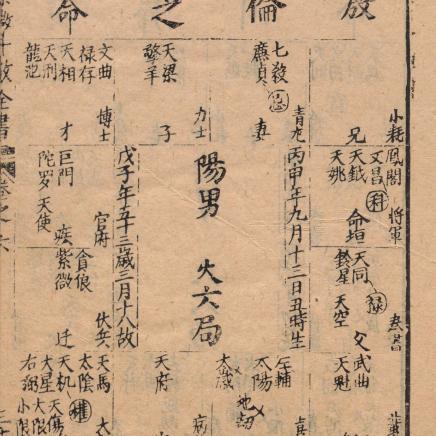 倫之命
小耗
鳳閣
將軍
文昌科
天鉞
天姚
兄
命垣
天同祿
鈴星
天空
奏書
父
武曲
天魁
七殺
廉貞忌
妻
青龙
天梁
擎羊
子
力士
丙申年九月十三日丑時生
陽男
火六局
戊子年五十三歲三月十八故
文曲
祿存
天相
天刑
龍池
才
博士
巨門
陀罗
天使
疾
官府
貪狼
紫微
迁
伏兵
左輔
太陽
地劫
大歲
病
天府
天馬
太陰
天机權
大星
右弼
天傷
大限
小限
全書
卷之六